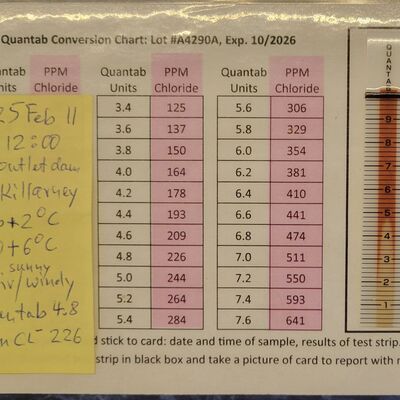 Quantab Conversion Chart: Lot #A4290A, Exp. 10/2026
antab PPM Quantab PPM Quantab PPM
Units Chloride Units Chloride Units Chloride
3.4 125 5.6 306
3.6 137 5.8 329
3.8 150 6.0 354
4.0 164 6.2 381
4.2 178 6.4 410
4.4 193 6.6 441
4.6 209 6.8 474
4.8 226 7.0 511
5.0 244 7.2 550
5.2 264 7.4 593
5.4 284 7.6 641
25 Feb 11
12:00
outlet dam
Killarney
+2°C
+6°C
sunny
windy
tab 4.8
CL⁻ 226
d stick to card: date and time of sample, results of test strip.
strip in black box and take a picture of card to report with
QUANTAB
9
8
7
6
5
4
3
2
1